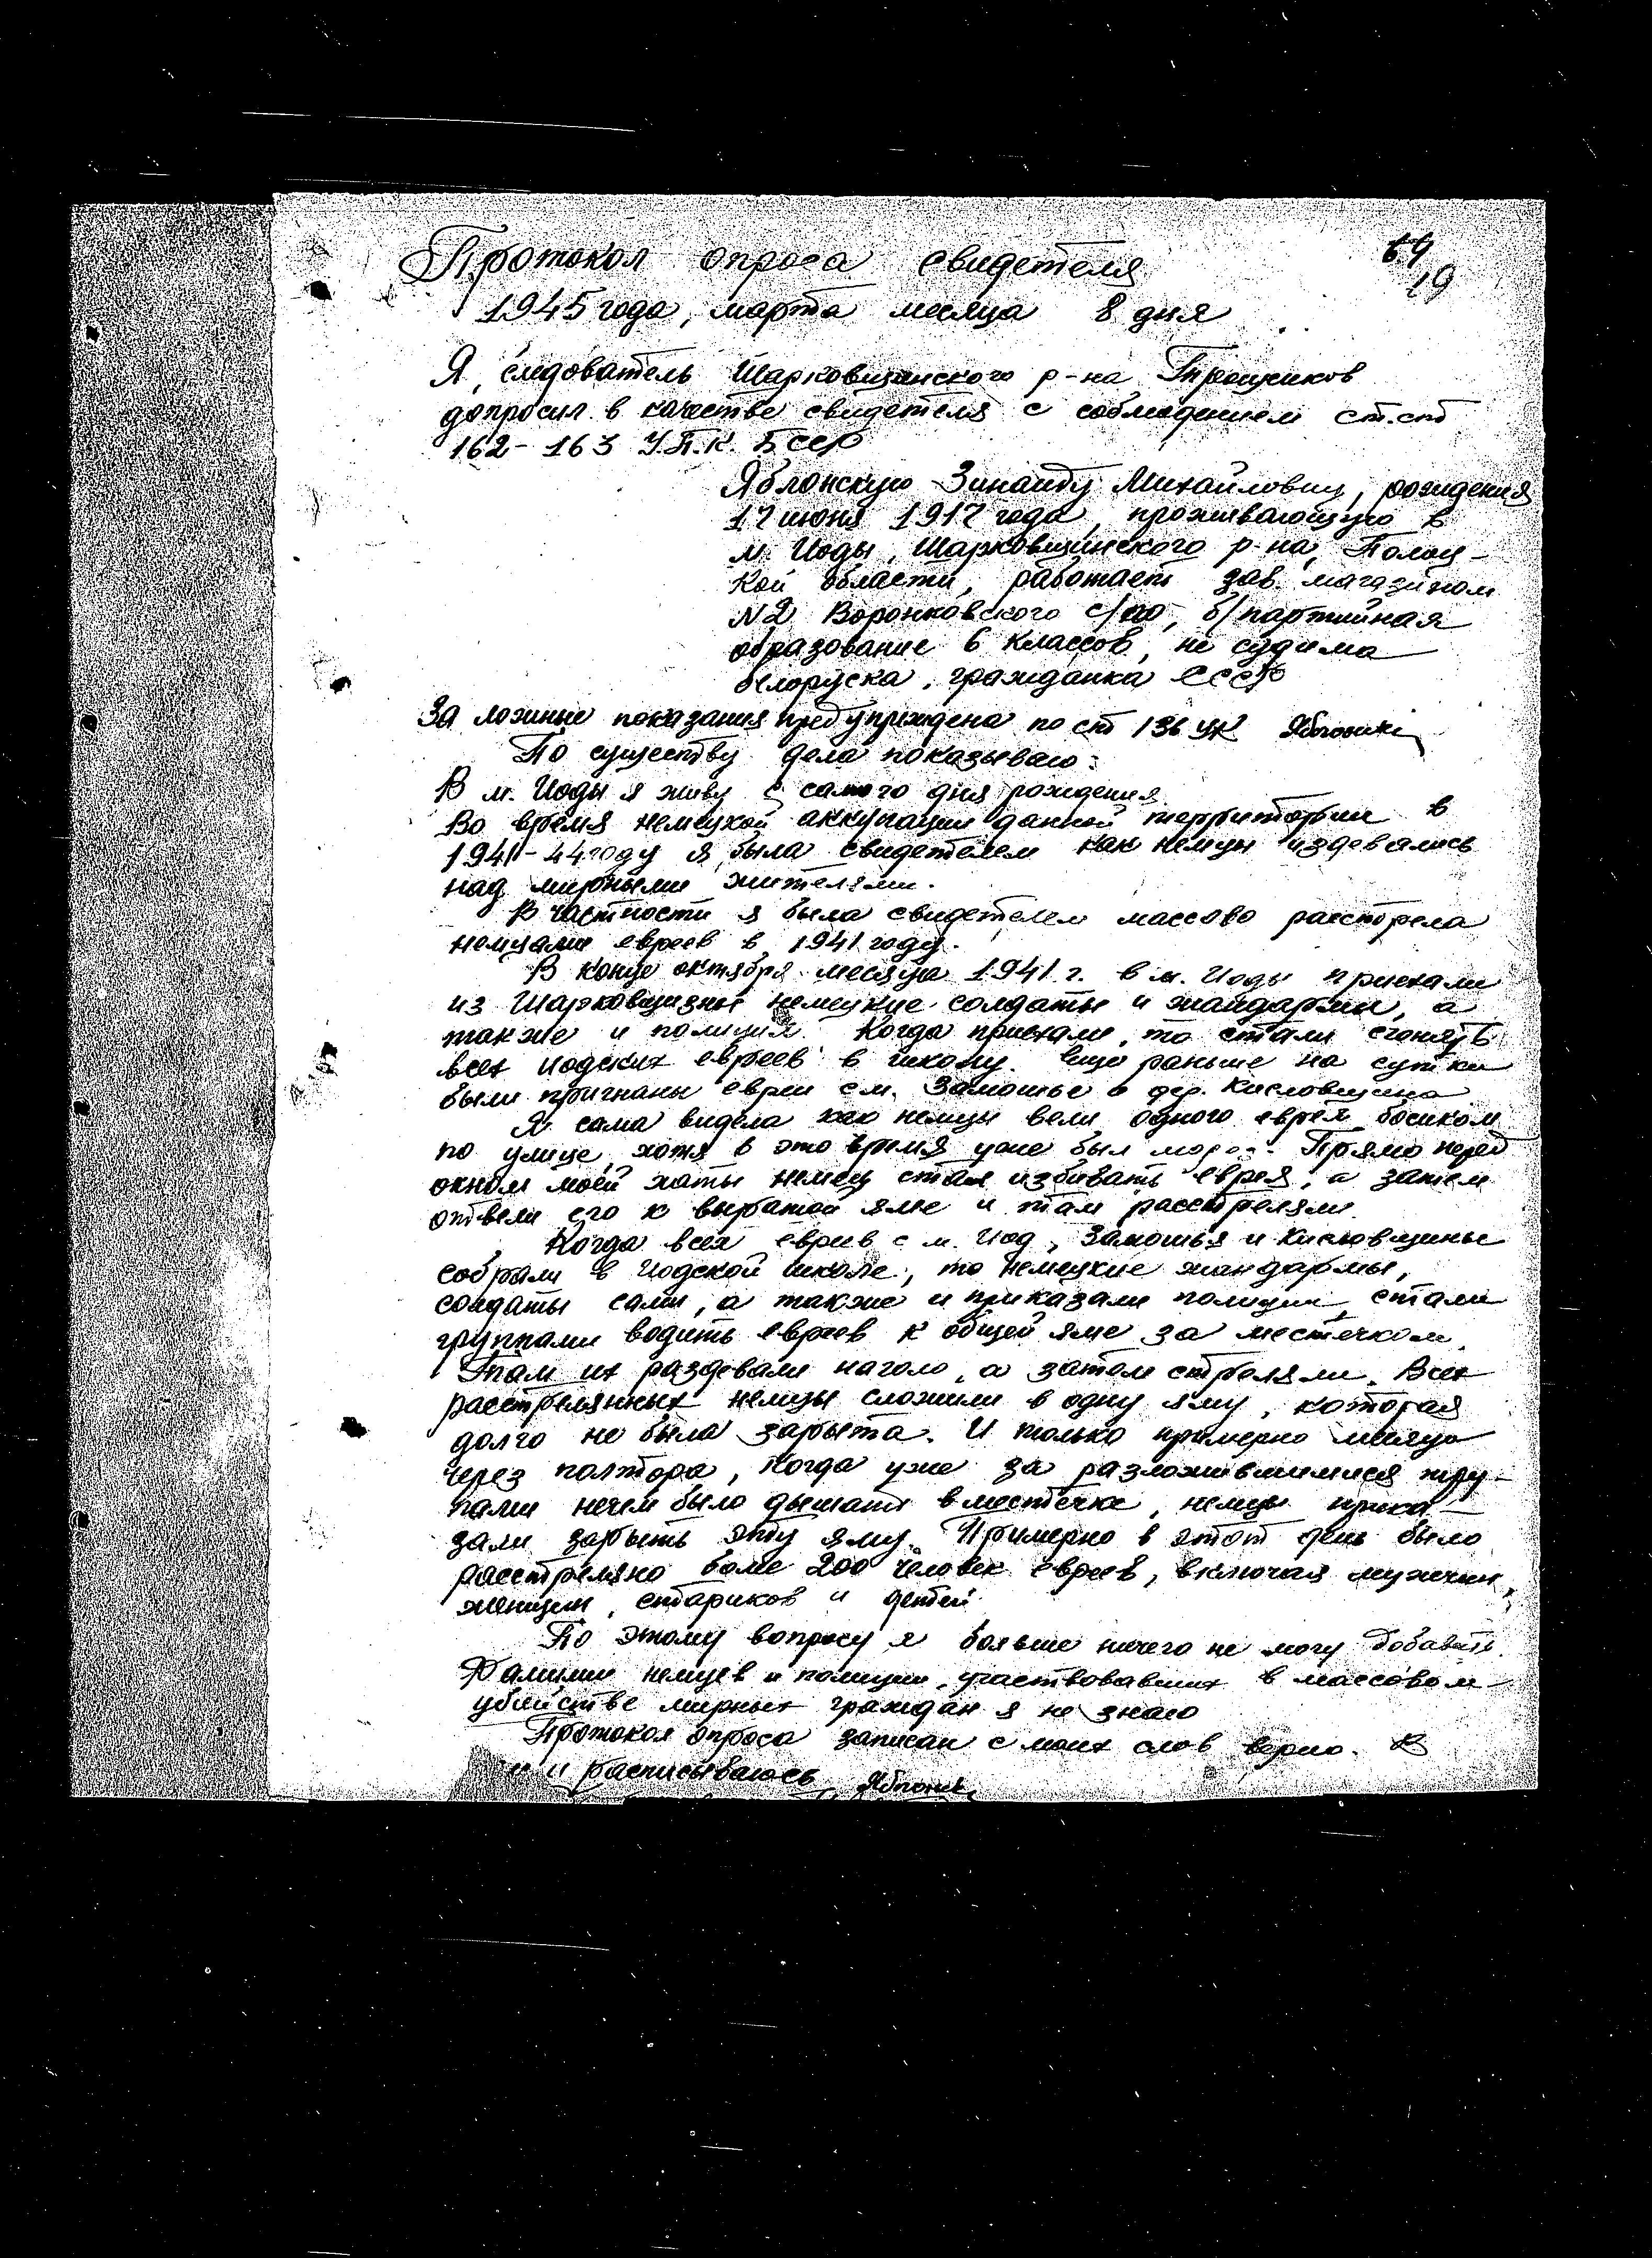 64
19
Протокол опроса свидетеля
1945 года, марта месяца 8 дня
Я, следователь Шарковщинского р-на Трощиков
допросил в качестве свидетеля с соблюдением ст.ст
162-163 У.П.К. БССР
Яблонскую Зинаиду Михайловну, рождения
17 июня 1917 года, проживающую в
м. Иоды, Шарковщинского р-на, Полоц-
кой области, работает зав. магазином
N2 Воронковского с/по, б/партийная
образование 6 классов, не судима
белоруска, гражданка СССР
За ложные показания предупреждена по ст 136 УК
По существу дела показываю:
В м. Иоды я живу с самого дня рождения
Во время немецкой аккупации данной территории в
1941-44 году я была свидетелем как немцы издевались
над мирными жителями.
В частности я была свидетелем массово расстрела
немцами евреев в 1941 году.
В конце октября месяца 1941 г. в м. Иоды приехали
из Шарковщизны немецкие солдаты и жандармы, а
также и полиция. Когда приехали, то стали сгонять
всех иодских евреев в школу. Еще раньше на сутки
были пригнаны евреи с м. Замошье и дер. Кисловщина
Я сама видела как немцы вели одного еврея босиком
по улице, хотя в это время уже был мороз. Прямо перед
окном моей хаты немец стал избивать еврея, а затем
отвели его к вырытой яме и там расстреляли.
Когда всех евреев с м. Иод, Замошья и Кисловщины
собрали в Иодской школе, то немецкие жандармы,
солдаты сами, а также и приказали полиции, стали
группами водить евреев к общей яме за местечком.
Там их раздевали наголо, а затем стреляли. Всех
расстрелянных немцы сложили в одну яму, которая
долго не была зарыта. И только примерно месяца
через полтора, когда уже за разложившимися тру-
пами нечем было дышать в местечке, немцы прика-
зали зарыть эту яму. Примерно в этот день было
расстреляно более 200 человек евреев, включая мужчин,
женщин, стариков и детей.
По этому вопросу я больше ничего не могу добавить.
Фамилии немцев и полиции, участвовавших в массовом
убийстве мирных граждан я не знаю
Протокол опроса записан с моих слов верно. В
и расписываюсь